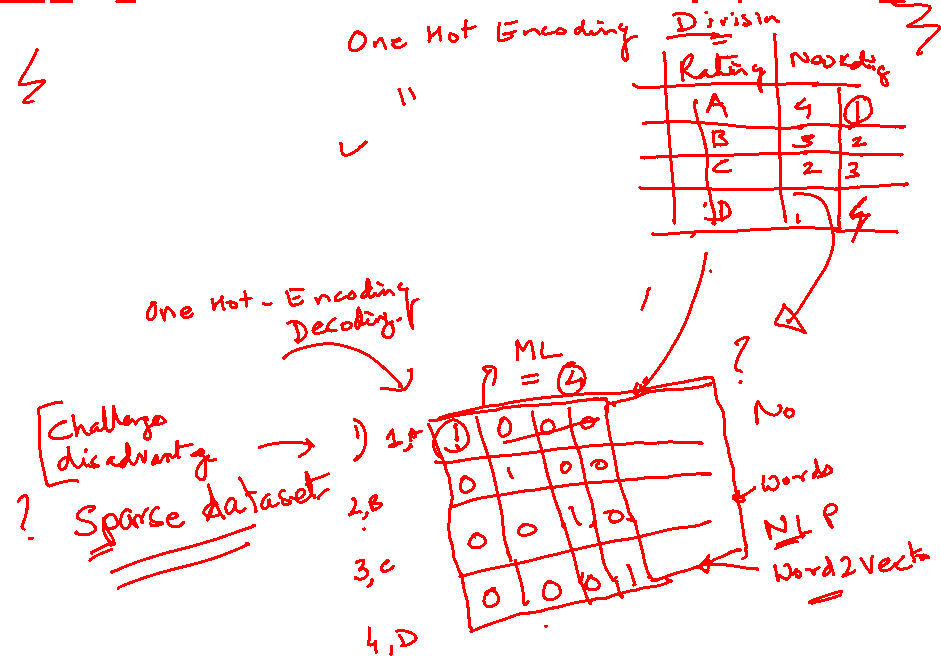 One Hot Encoding
Divisin
Rating
A 4 1
B 3 2
C 2 3
D 1 4
One Hot - Encoding
Decoding
ML
= 4
?
No
Challenge
disadvantg
?
Sparse dataset
1) 1,A 1 0 0 0
0 1 0 0
2,B
0 0 1 0
3,C
0 0 0 1
4,D
Words
NLP
Word2Vect